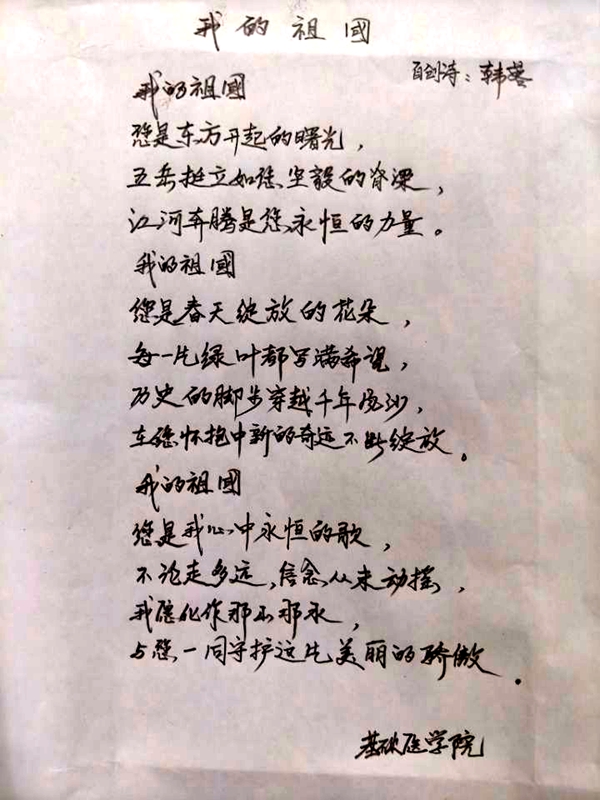 我的祖國
自创诗：韩
我的祖國
您是东方开起的曙光，
五岳挺立如您坚毅的脊梁，
江河奔腾是您永恒的力量。
我的祖國
您是春天绽放的花朵，
每一片绿叶都写满希望，
历史的脚步穿越千年风沙，
在您怀抱中新的奇迹不断绽放。
我的祖國
您是我心中永恒的歌，
不论走多远，信念从未动摇，
我愿化作那山那水，
与您一同守护这片美丽的骄傲。
基础医学院